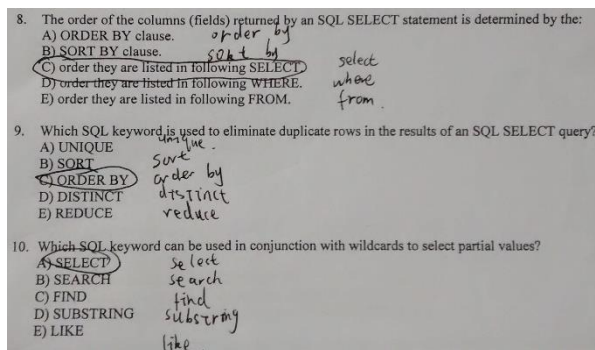 8. The order of the columns (fields) returned by an SQL SELECT statement is determined by the:
A) ORDER BY clause. order by
B) SORT BY clause. sort by
C) order they are listed in following SELECT. select
D) order they are listed in following WHERE. where
E) order they are listed in following FROM. from.
9. Which SQL keyword is used to eliminate duplicate rows in the results of an SQL SELECT query?
A) UNIQUE unique.
B) SORT sort
C) ORDER BY order by
D) DISTINCT distinct
E) REDUCE reduce
10. Which SQL keyword can be used in conjunction with wildcards to select partial values?
A) SELECT select
B) SEARCH search
C) FIND find
D) SUBSTRING substring
E) LIKE like